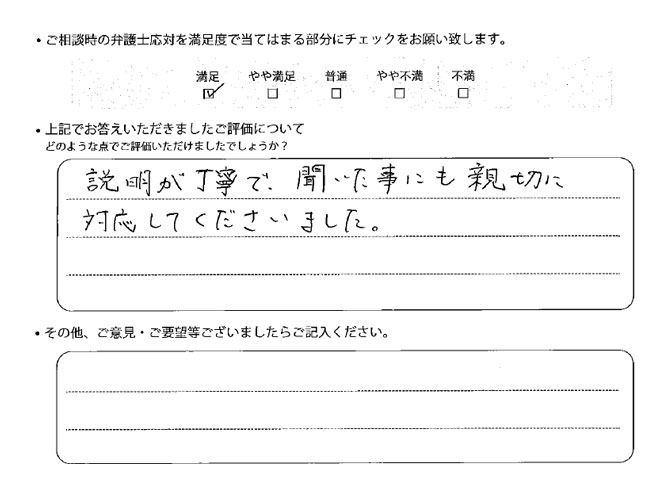 ・ご相談時の弁護士応対を満足度で当てはまる部分にチェックをお願い致します。
満足 やや満足 普通 やや不満 不満
・上記でお答えいただきましたご評価について
どのような点でご評価いただけましたでしょうか？
説明が丁寧で、聞いた事にも親切に
対応してくださいました。
・その他、ご意見・ご要望等ございましたらご記入ください。